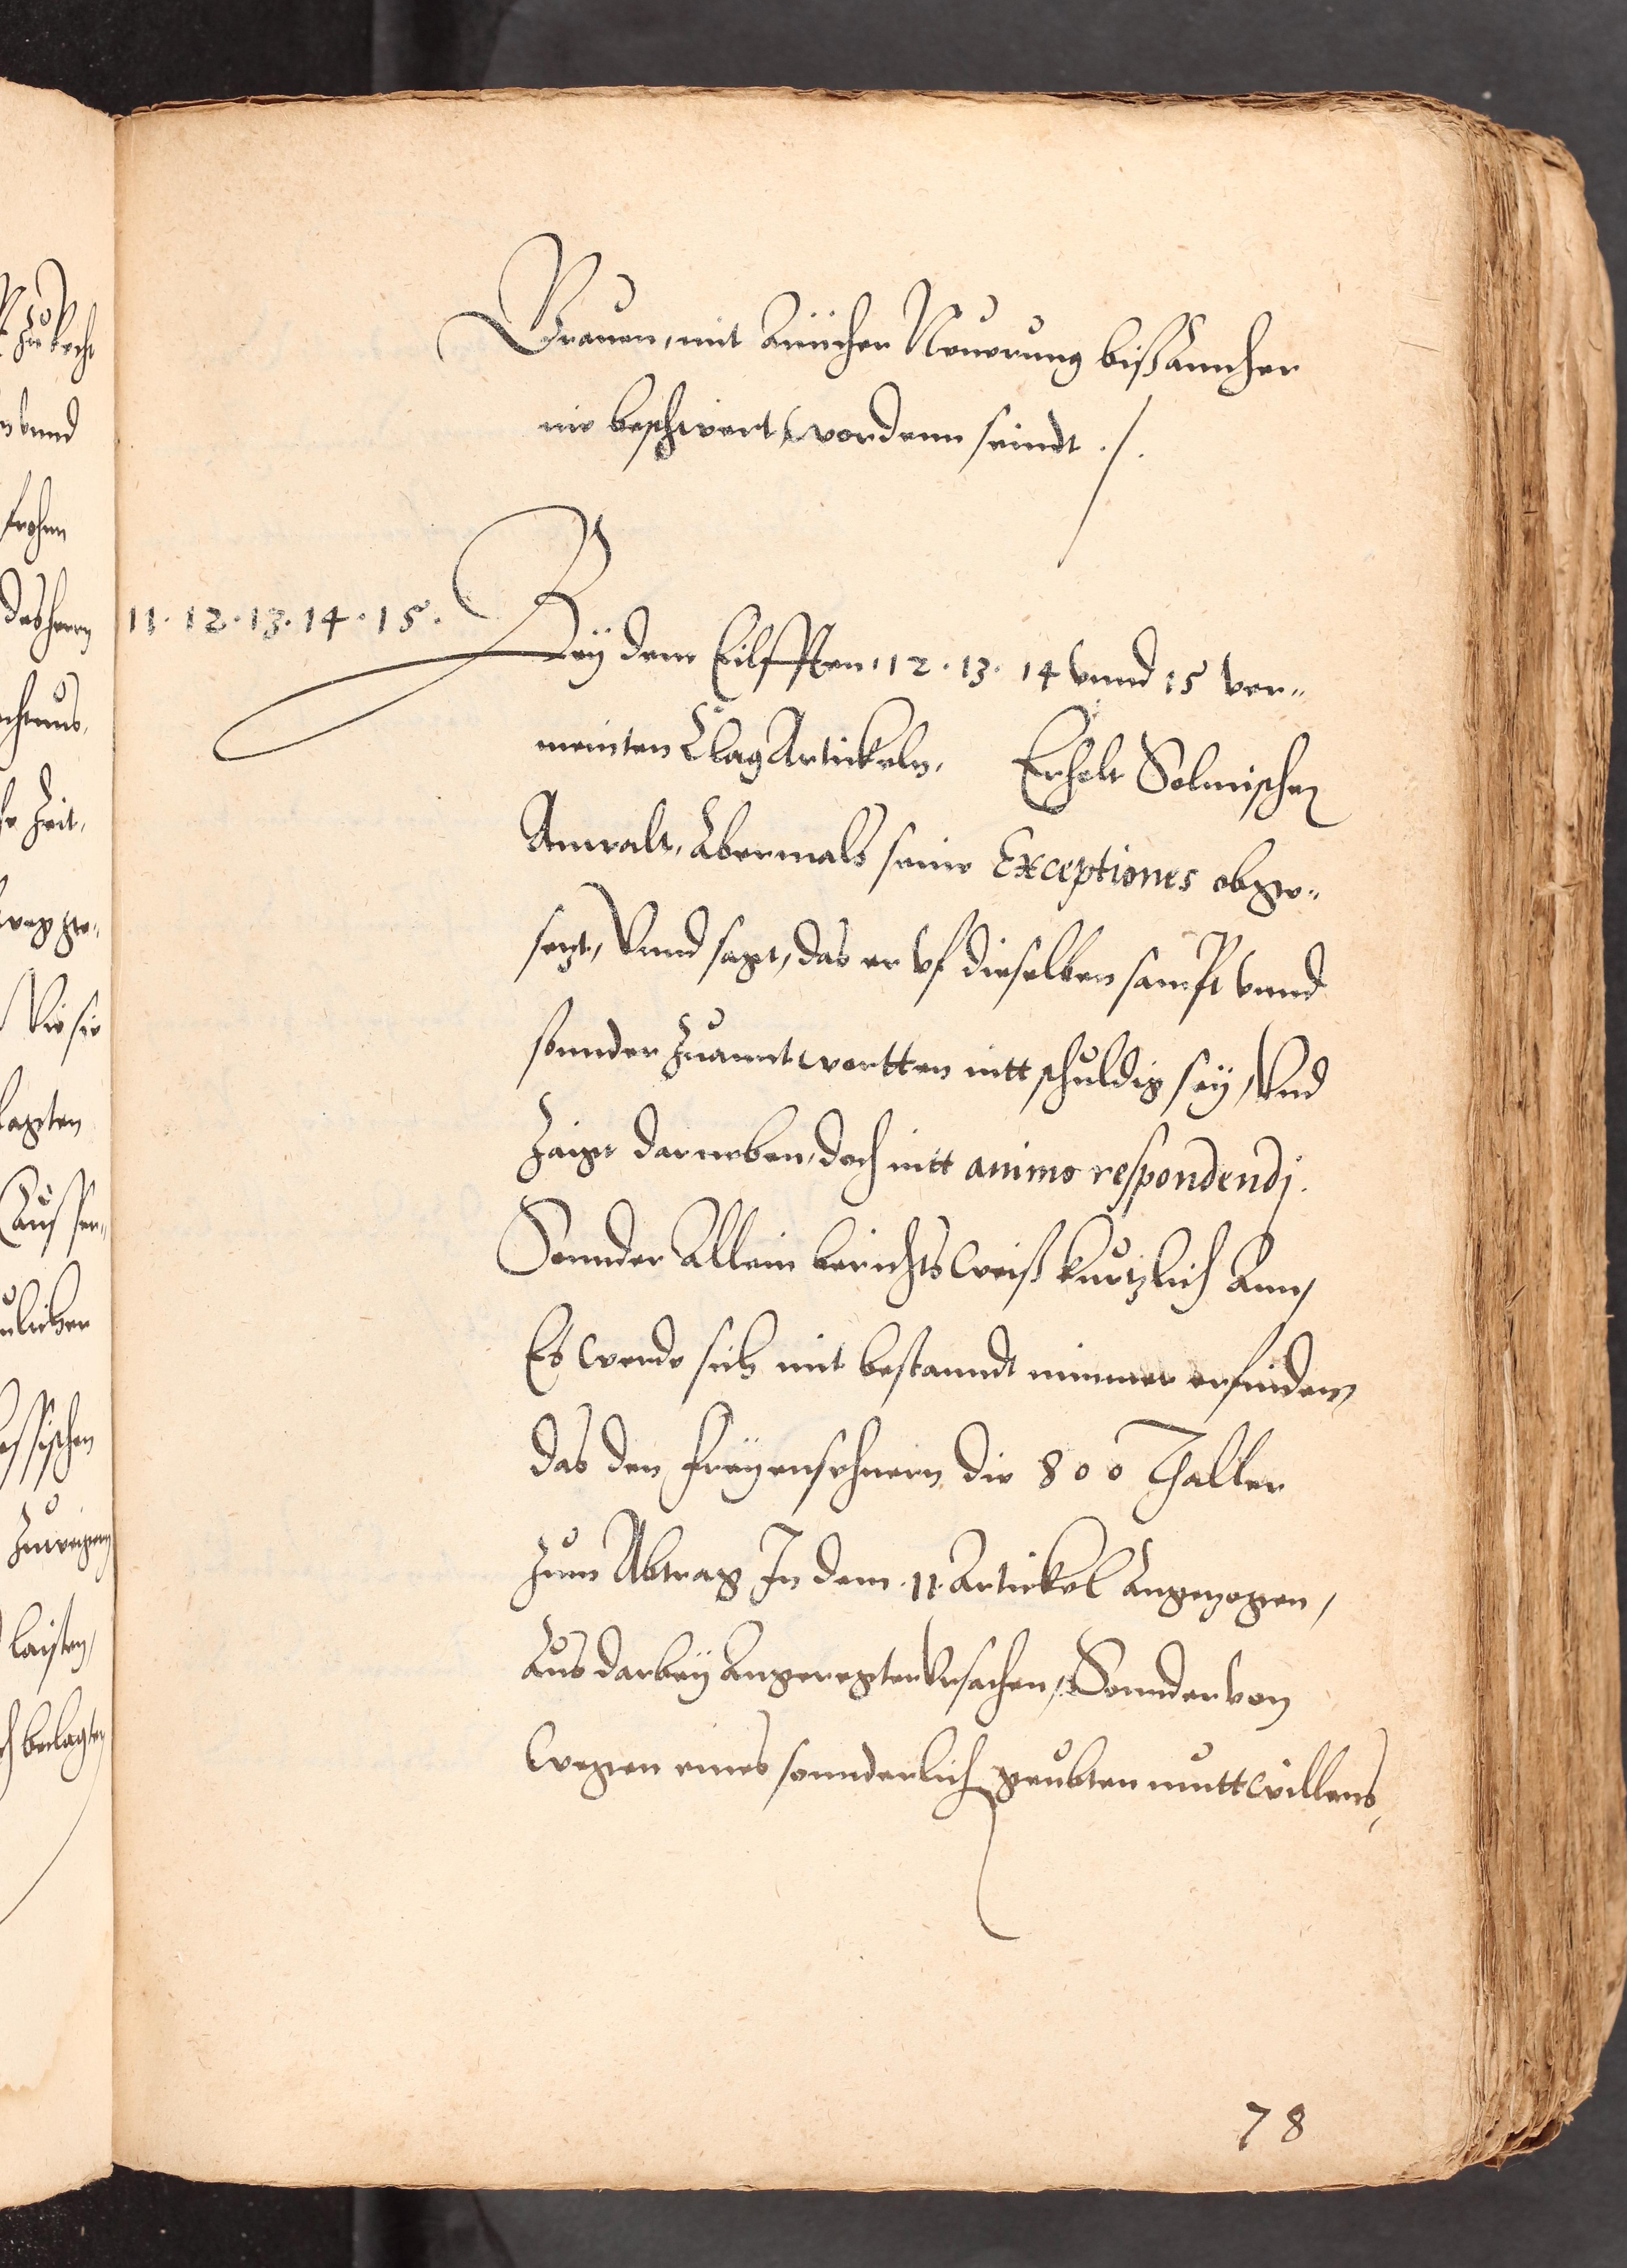 Grauen, mit Einicher Neuerung bißannher
nie beschwert wordenn seindt ./.
11. 12. 13. 14. 15.
Bey dem Eilfften, 12. 13. 14 vnnd 15 ver-
meinten Clag Artickeln, Erholt Solmischer
Anwalt, Abermals seine Exceptiones obge-
setzt, Vnnd sagt, das er vf dieselben sampt vnnd
sonnder zuanntwortten nitt schuldig sey, Vnd
Zaigt darneben, doch nitt animo respondendj.
Sonnder Allein berichts weiß kurtzlich Ann,
Es werde sich mit bestanndt nimmer erfinden,
das den Freyensehnern die 800 Thaller
zum Abtrag In dem .11. Artickel Angezogen,
Aus darbey Angeregten Vrsachen, Sonnder von
wegen eines sonnderlich geubten muttwillens,
78
zu recht
vnnd
frohnn
des herrn
Zeit,
Wie sie
lagten
laisten,
beclagten